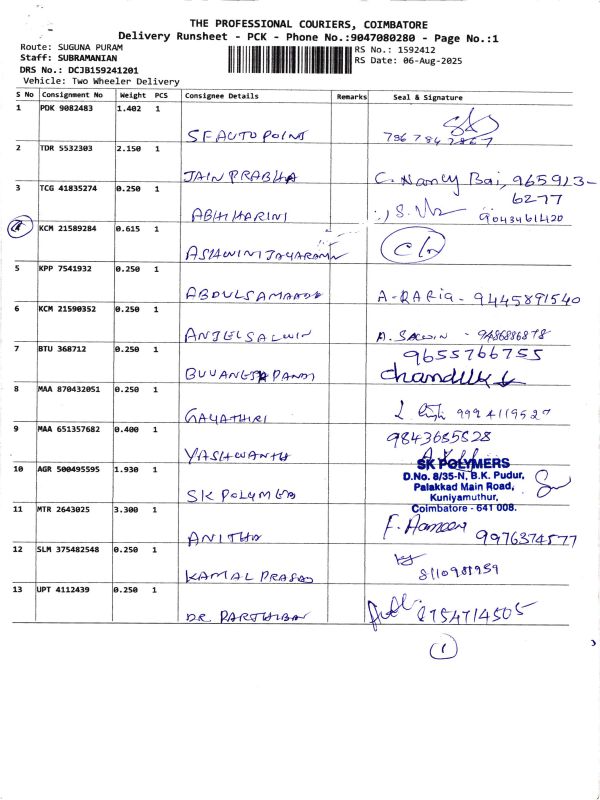 THE PROFESSIONAL COURIERS, COIMBATORE
Delivery Runsheet - PCK - Phone No.:9047080280 - Page No.:1
Route: SUGUNA PURAM RS No.: 1592412
Staff: SUBRAMANIAN RS Date: 06-Aug-2025
DRS No.: DCJB159241201
Vehicle: Two Wheeler Delivery
S No Consignment No Weight PCS Consignee Details Remarks Seal & Signature
1 PDK 9082483 1.402 1
SF AUTO POINT 786 784 2867
2 TDR 5532303 2.150 1
JAIN PRABHA C. Nancy Bai, 965913-
6277
3 TCG 41835274 0.250 1
ABHI HARINI 9043461420
4 KCM 21589284 0.615 1
ASHWINI JAYARAMAN
5 KPP 7541932 0.250 1
ABDULSAMAADD A-RAFIA - 9445891540
6 KCM 21590352 0.250 1
ANJELSALWIN A. SALWIN - 9486886878
7 BTU 368712 0.250 1 9655766755
8 MAA 870432051 0.250 1
GAYATHRI 9994119527
9 MAA 651357682 0.400 1 9843685828
YASHWANTH
10 AGR 500495595 1.930 1
SK POLYMERS
D.No. 8/35-N, B.K. Pudur,
Palakkad Main Road,
Kuniyamuthur,
Coimbatore - 641 008.
SK POLYMER
11 MTR 2643025 3.300 1
ANITHA 9976374577
12 SLM 375482548 0.250 1
KAMAL PRASAD 8110981959
13 UPT 4112439 0.250 1
DR. PARTHIBAN 8754714505
1